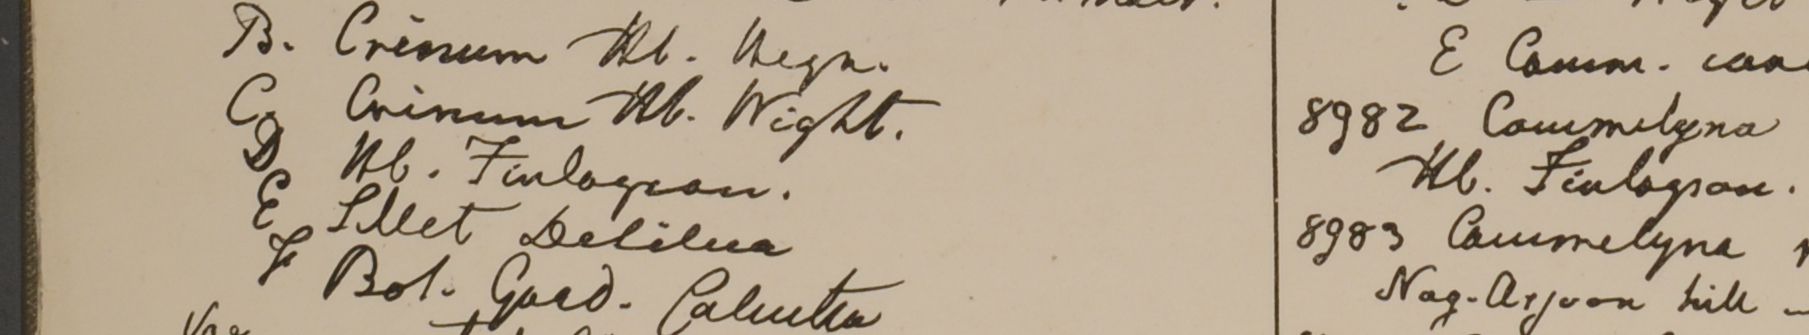 B. Crinum Hb. Heyn.
C. Crinum Hb. Wight.
D Hb. Finlayson.
E Sillet
F Bot. Gard. Calcutta
E Comm.
8982 Commelyna
Hb. Finlayson.
8983 Commelyna
Nag-Arjoon hill